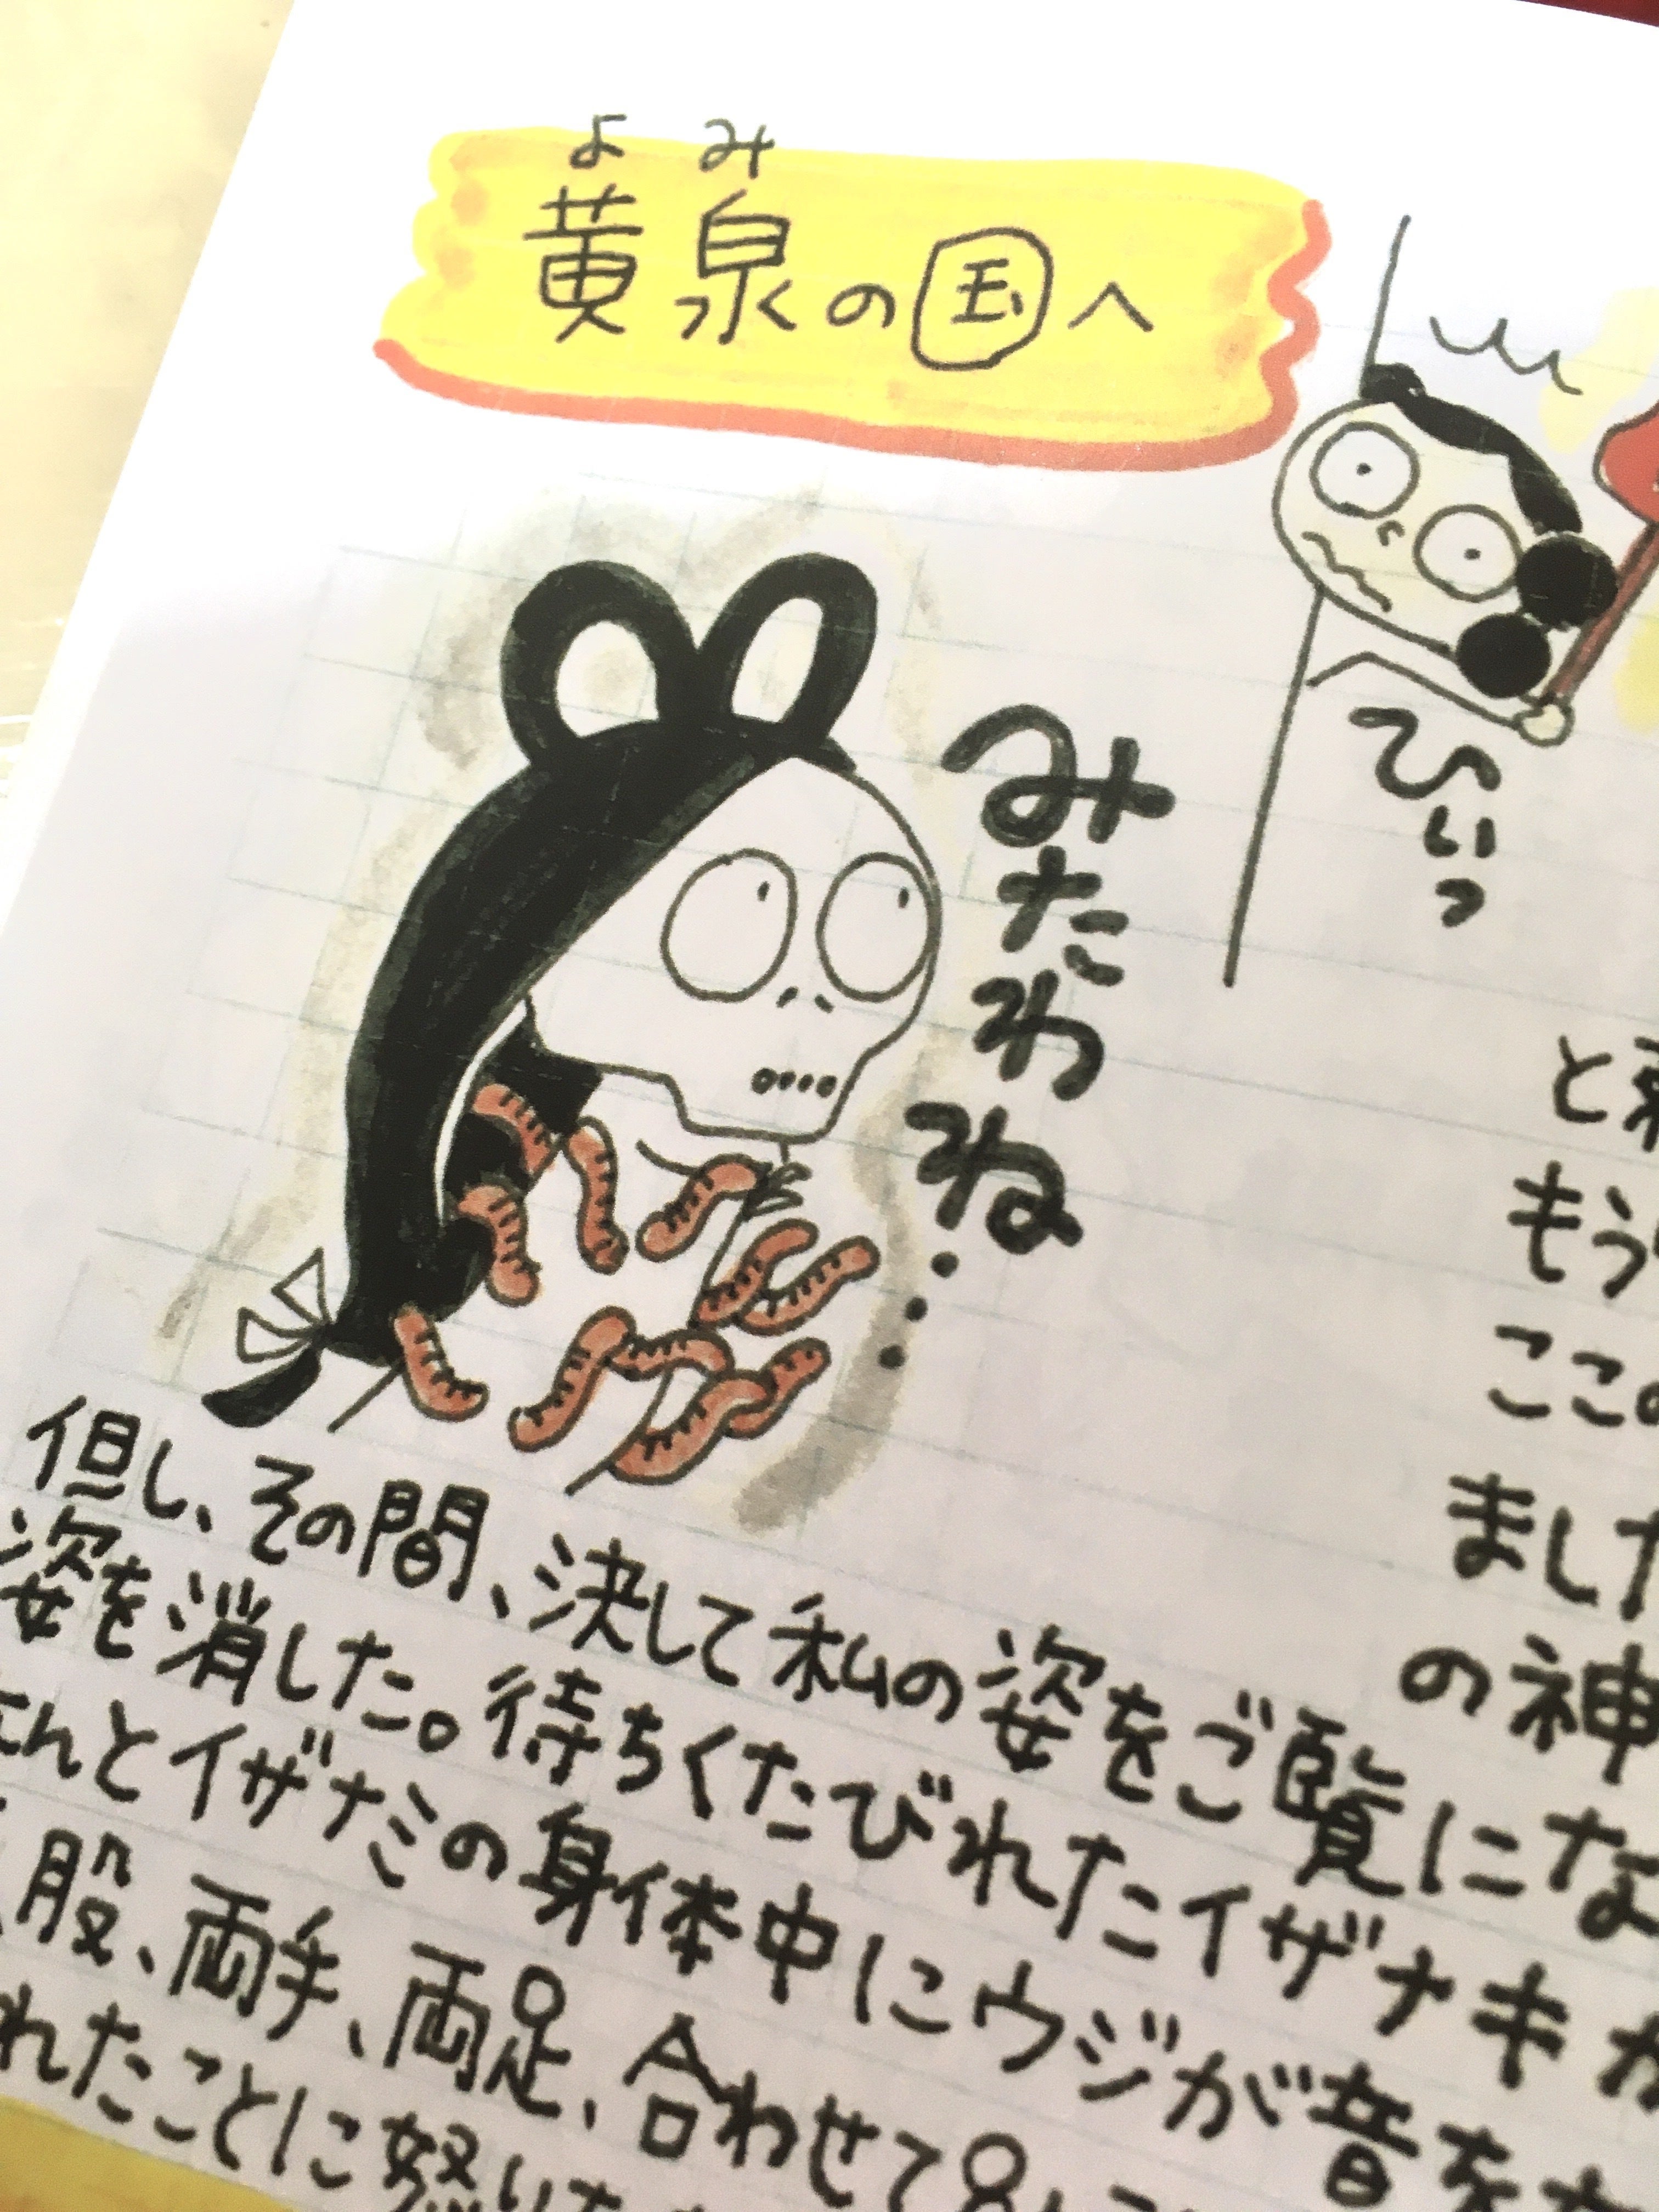 よみ
黄泉の国へ
ひぃっ
みたわね…
と
もう
ここ
ました
の神
但し、その間、決して私の姿をご覧にな
姿を消した。待ちくたびれたイザナキ
んとイザナミの身体中にウジが音を
股、両手、両足、合わせて
れたことに怒り